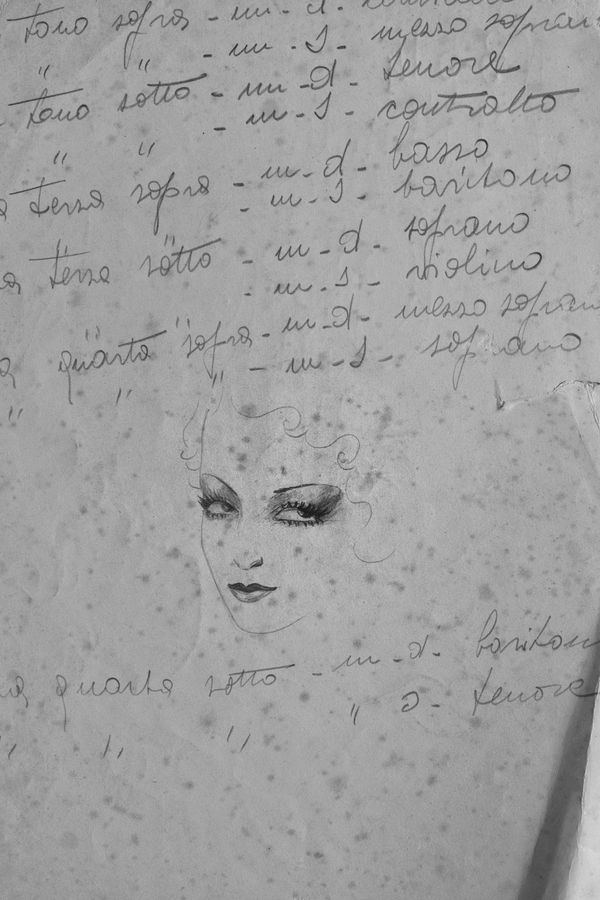 tono sopra - m - d -
" " - m - s - mezzo soprano
tono sotto - m - d - tenore
" " - m - s - contralto
a terza sopra - m - d - basso
- m - s - baritono
a terza sotto - m - d - soprano
" " - m - s - violino
a quarta sopra - m - d - mezzo soprano
" " " - m - s - soprano
a quarta sotto - m - d - baritono
" " " " s - tenore